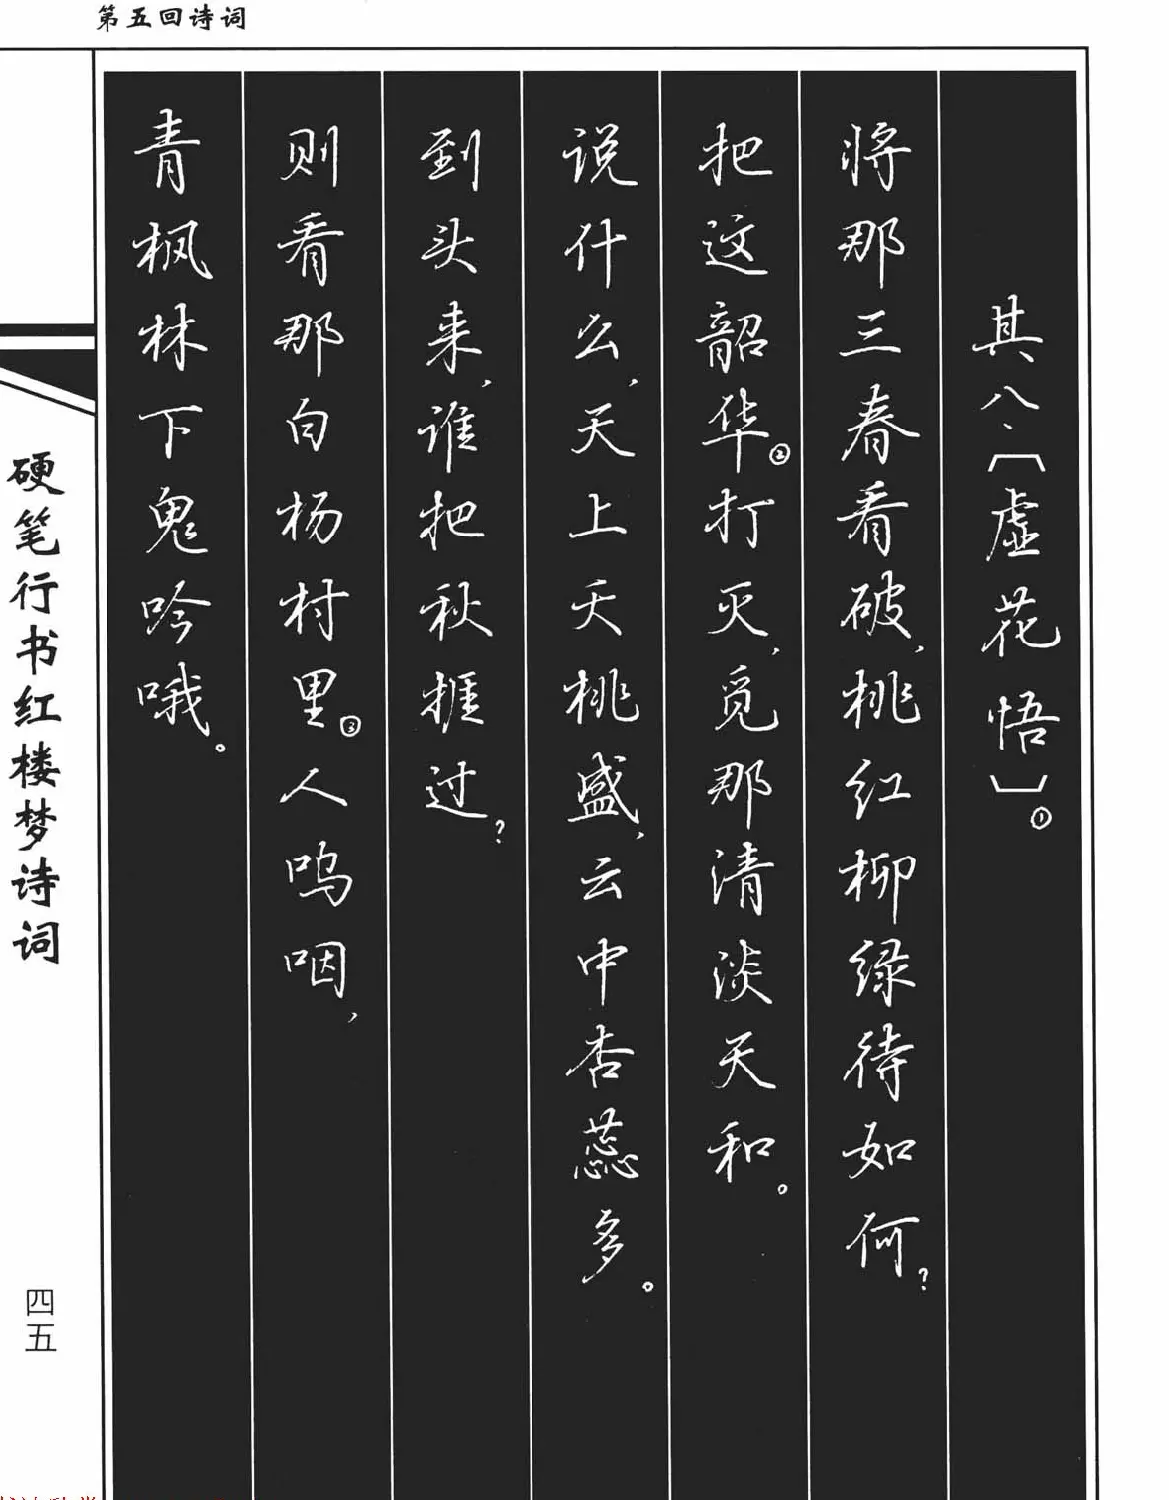 第五回诗词
其八、〔虚花悟〕①
将那三春看破，桃红柳绿待如何？
把这韶华②打灭，觅那清淡天和。
说什么，天上夭桃盛，云中杏蕊多。
到头来，谁把秋捱过？
则看那白杨村里③人呜咽，
青枫林下鬼吟哦。
硬笔行书红楼梦诗词
四五